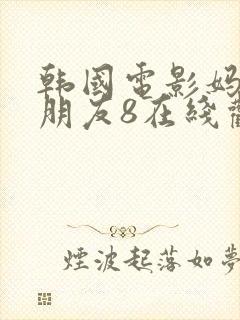 韩國電影妈
朋友8在綫
煙波起落如夢